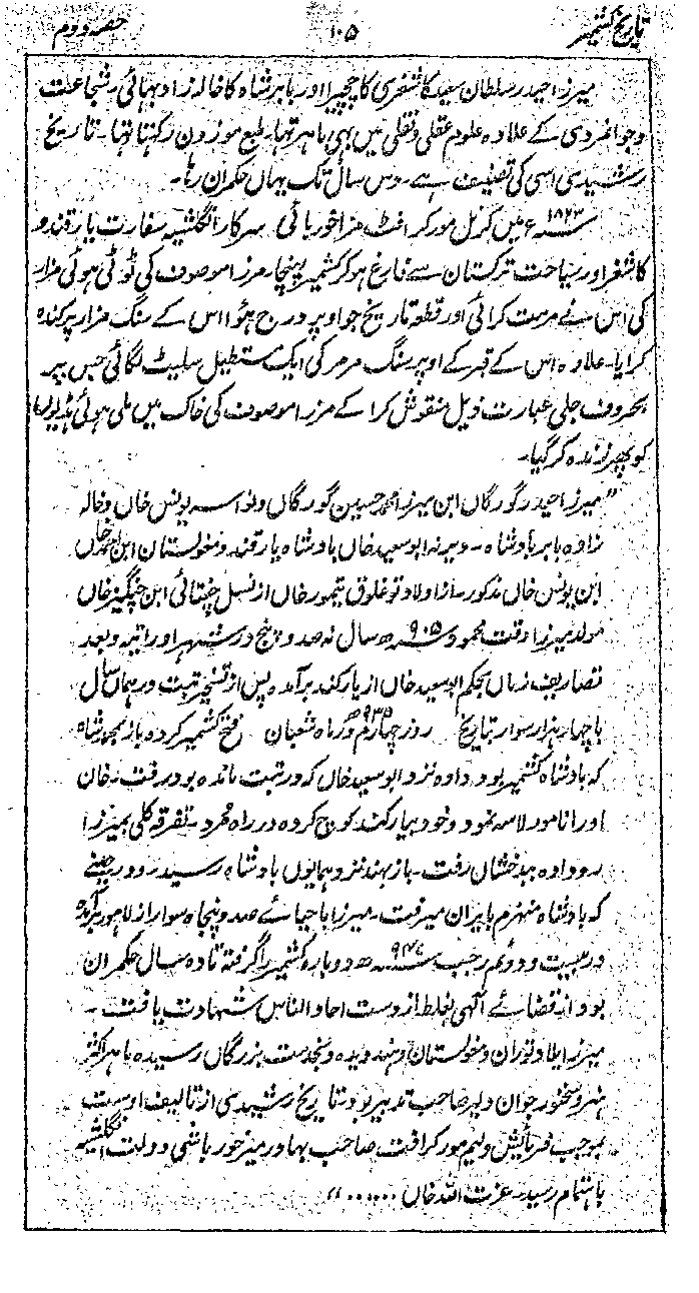 تاریخ کشمیر ۱۰۵ حصہ دوم
میرزا حیدر سلطان سعید کاشغری کا چچیرا اور بابر شاہ کا خالہ زاد بھائی۔ شجاعت
وجوانمردی کے علاوہ علوم عقلی ونقلی میں بھی ماہر تھا۔ طبع موزون رکھتا تھا۔ تاریخ
رشیدی اسی کی تصنیف ہے۔ دس سال تک یہاں حکمران رہا۔
۱۸۲۳ء میں کرنل مورکرافٹ میر اخور باشی سرکار انگلشیہ سفارت یارقند و
کاشغر اور سیاحت ترکستان سے فارغ ہو کر کشمیر پہنچا۔ مرزا موصوف کی ٹوٹی ہوئی مزار
کی اس نے مرمت کرائی اور قطعہ تاریخ جو اوپر درج ہوا اس کے سنگ مزار پر کندہ
کرایا۔ علاوہ اس کے قبر کے اوپر سنگ مرمر کی ایک مستطیل سلیٹ لگائی جس پر
بحروف جلی عبارت ذیل منقوش کرا کے مرزا موصوف کی خاک میں ملی ہوئی ہڈیوں
کو پھر زندہ کر گیا۔
"میرزا حیدر گورگاں ابن میرزا محمد حسین گورگاں ونواسہ یونس خاں وخالہ
زادہ بابر بادشاہ۔ ابو سعید خاں بادشاہ یارقند ومغولستان ابن احمد خاں
ابن یونس خاں مذکور۔ از اولاد توغلوق تیمور خاں از نسل چغتائی ابن چنگیز خاں
مولد میرزا وقت محمود ۹۰۵ھ سال نہ صد و پنج در شہر اوراتپہ وبعد
تصاریف زماں بحکم ابو سعید خاں از یارکند برآمدہ پس از تسخیر تبت در ہماں سال
با چہار ہزار سوار بتاریخ روز چہارم ۹۳۵ھ ماہ شعبان فتح کشمیر کردہ باز بمحمد شاہ
کہ بادشاہ کشمیر بود دادہ نزد ابو سعید خاں کہ در تبت ماندہ بود رفت۔ خان
اورا نامور لاسہ نمود و خود بیارکند کوچ کردہ در راہ مرد۔ تفرقہ کلی بمیرزا
رو دادہ ببدخشاں رفت۔ باز بہند نزد ہمایوں بادشاہ رسید ودر حینے
کہ بادشاہ منہزم بایران میرفت۔ میرزا صد و پنجاہ سوار از لاہور برآمدہ
در بیست و دوم رجب ۹۴۷ھ دوبارہ کشمیر را گرفتہ تا دہ سال حکمران
بود از قضائے الٰہی بغلط از دست احاد الناس شہادت یافت۔
میرزا ایلاد توران و مغولستان وہند دیدہ وبخدمت بزرگاں رسیدہ ماہر اکثر
ہنر وسخنور جوان دلیر صاحب تدبیر بود تاریخ رشیدی از تالیف اوست
بموجب فرمائش ولیم مورکرافت صاحب بہادر میر خور باشی دولت انگلشیہ
باہتمام رسید۔ عزت اللہ خاں ......"